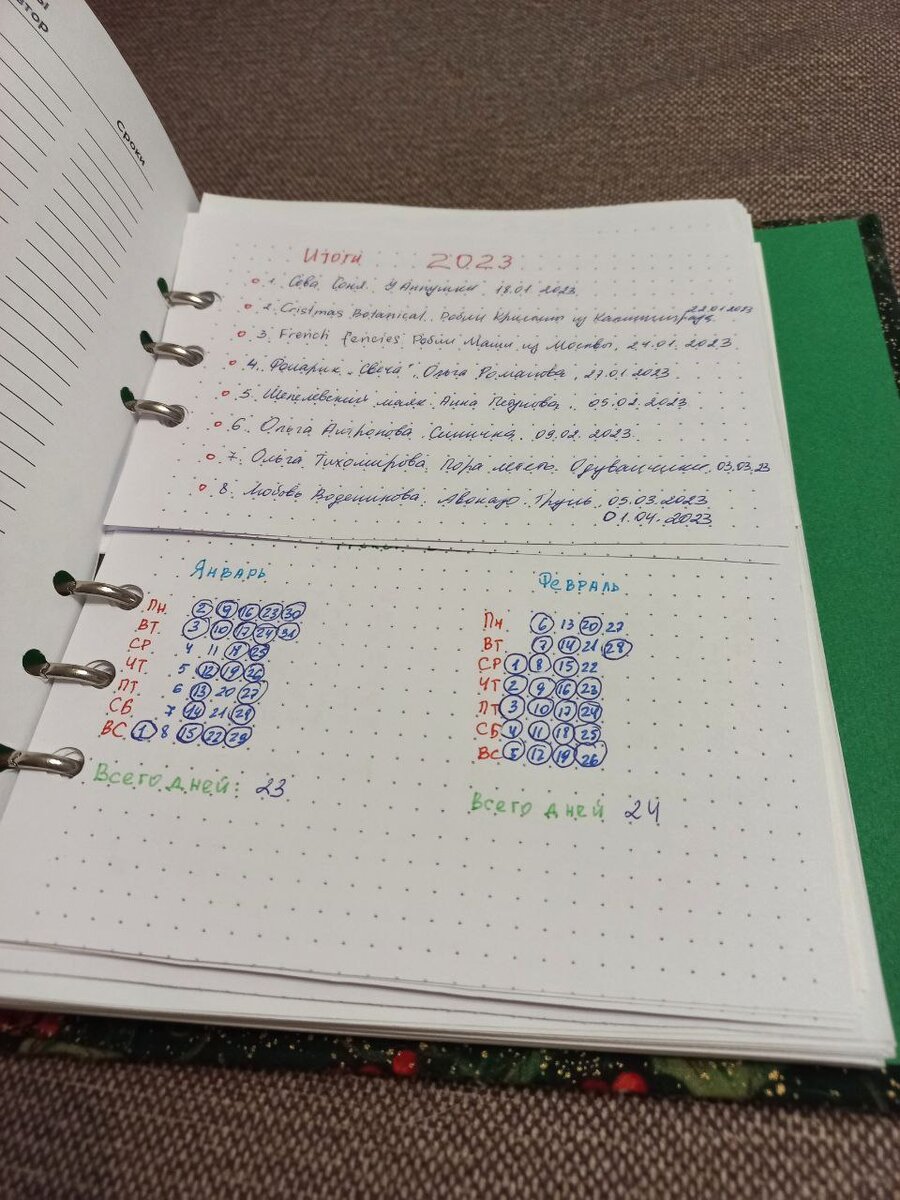 Сроки
Итоги 2023
1. Сова Соня. У Аннушки 18.01 2023
2. Cristmas Botanical. Робин Кристины из 22.01 2023
3. French fencies Робин Маши из Москвы, 24.01. 2023
4. Фонарик „Свеча" Ольга Романова, 27.01 2023
5. Шепелевский маяк. Анна 05.02.2023
6. Ольга Антонова. Синичка. 09.02. 2023.
7. Ольга Тихомирова. Пора лететь. Одуванчики. 03.03.23
8. Любовь Воденикова. Авокадо Груль. 05.03.2023
01.04.2023
Январь
ПН. 2 9 16 23 30
ВТ. 3 10 17 24 31
СР 4 11 18 25
ЧТ 5 12 19 26
ПТ 6 13 20 27
СБ 7 14 21 28
ВС. 1 8 15 22 29
Всего дней: 23
Февраль
ПН 6 13 20 27
ВТ 7 14 21 28
СР 1 8 15 22
ЧТ 2 9 16 23
ПТ 3 10 17 24
СБ 4 11 18 25
ВС 5 12 19 26
Всего дней 24